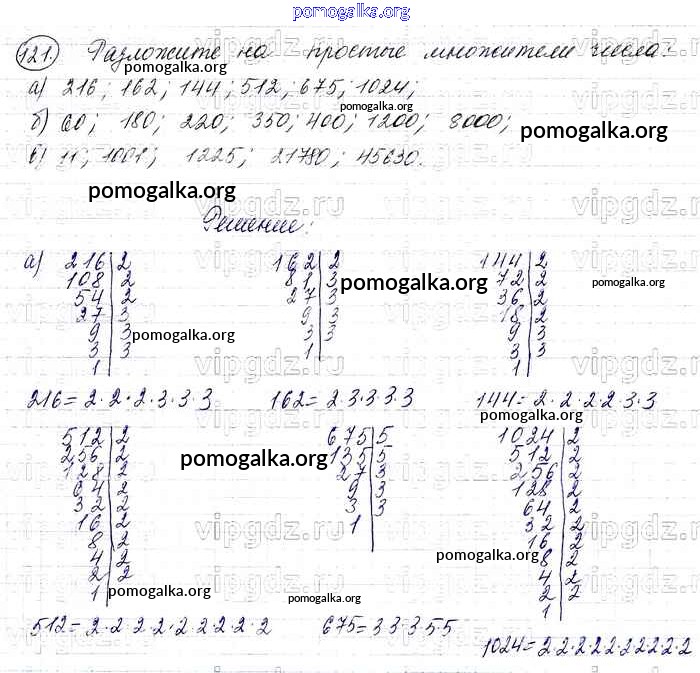 pomogalka.org
121. Разложите на простые множители числа:
pomogalka.org
а) 216; 162; 144; 512; 675; 1024;
pomogalka.org
б) 60; 180; 220; 350; 400; 1200; 8000;
pomogalka.org
в) 11; 1001; 1225; 21780; 45630.
pomogalka.org
vipgdz.ru
Решение:
а) 216 | 2 162 | 2 144 | 2
108 | 2 81 | 3 72 | 2
pomogalka.org pomogalka.org
54 | 2 27 | 3 36 | 2
27 | 3 9 | 3 18 | 2
9 | 3 3 | 3 9 | 3
pomogalka.org
3 | 3 1 | 3 | 3
1 | 1 |
216 = 2·2·2·3·3·3 162 = 2 3·3 3 3 144 = 2·2·2 2 3·3
pomogalka.org
512 | 2 675 | 5 1024 | 2
256 | 2 135 | 5 512 | 2
pomogalka.org
128 | 2 27 | 3 256 | 2
64 | 2 9 | 3 128 | 2
32 | 2 3 | 3 64 | 2
16 | 2 1 | 32 | 2
8 | 2 16 | 2
pomogalka.org
4 | 2 8 | 2
2 | 2 4 | 2
1 | 2 | 2
pomogalka.org pomogalka.org
1 |
512 = 2·2·2 2·2·2 2·2·2 675 = 3·3·3·5 5
1024 = 2·2·2·2·2·2·2·2·2·2